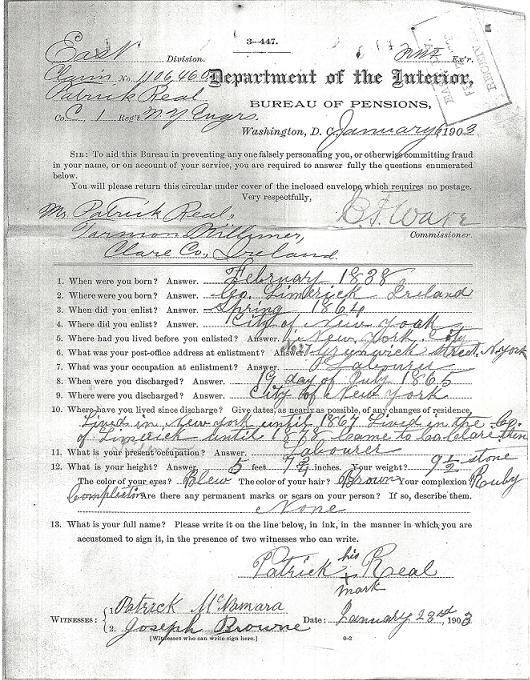 3-447.
East Division. Ex'r.
Claim No. 1106,460
Department of the Interior,
Patrick Real
BUREAU OF PENSIONS,
Co. C 1 Reg't N.Y Engrs.
Washington, D. C. January 1903
SIR: To aid this Bureau in preventing any one falsely personating you, or otherwise committing fraud
in your name, or on account of your service, you are required to answer fully the questions enumerated
below.
You will please return this circular under cover of the inclosed envelope which requires no postage.
Very respectfully,
Mr. Patrick Real,
Commissioner.
Clare Co, Ireland.
1. When were you born? Answer. February 1838
2. Where were you born? Answer. Co. Limerick Ireland
3. When did you enlist? Answer. Spring 1864
4. Where did you enlist? Answer. City of New York
5. Where had you lived before you enlisted? Answer. New York City
6. What was your post-office address at enlistment? Answer. Greenwich Street, N. York
7. What was your occupation at enlistment? Answer. Labourer
8. When were you discharged? Answer. 19 day of July 1865
9. Where were you discharged? Answer. City of New York
10. Where have you lived since discharge? Give dates, as nearly as possible, of any changes of residence.
Lived in New York until 1867 Lived in the Co.
of Limerick until 1878, Came to Co Clare then
11. What is your present occupation? Answer. Labourer
12. What is your height? Answer. 5 feet 7 3/4 inches. Your weight? 9 1/2 stone
The color of your eyes? Blew The color of your hair? Brown Your complexion Ruby
Complection Are there any permanent marks or scars on your person? If so, describe them.
None
13. What is your full name? Please write it on the line below, in ink, in the manner in which you are
accustomed to sign it, in the presence of two witnesses who can write.
Patrick his x mark Real
WITNESSES: { 1. Patrick McNamara
2. Joseph Browne
Date: January 23rd, 1903
[Witnesses who can write sign here.] 6-2